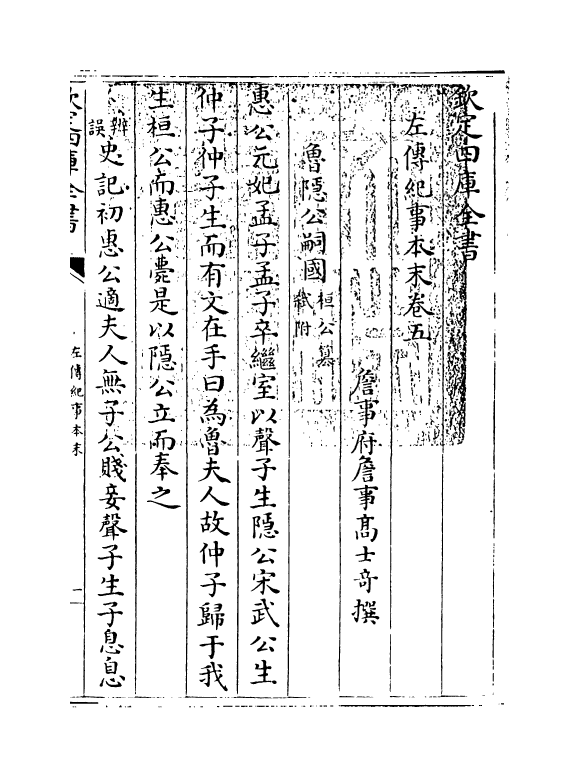 欽定四庫全書
左傳紀事本末卷五
詹事府詹事高士奇撰
魯隱公嗣國桓公纂弑附
惠公元妃孟子孟子卒繼室以聲子生隱公宋武公生
仲子仲子生而有文在手曰為魯夫人故仲子歸于我
生桓公而惠公薨是以隱公立而奉之
辨誤史記初惠公適夫人無子公賤妾聲子生子息息
欽定四庫全書
左傳紀事本末
一